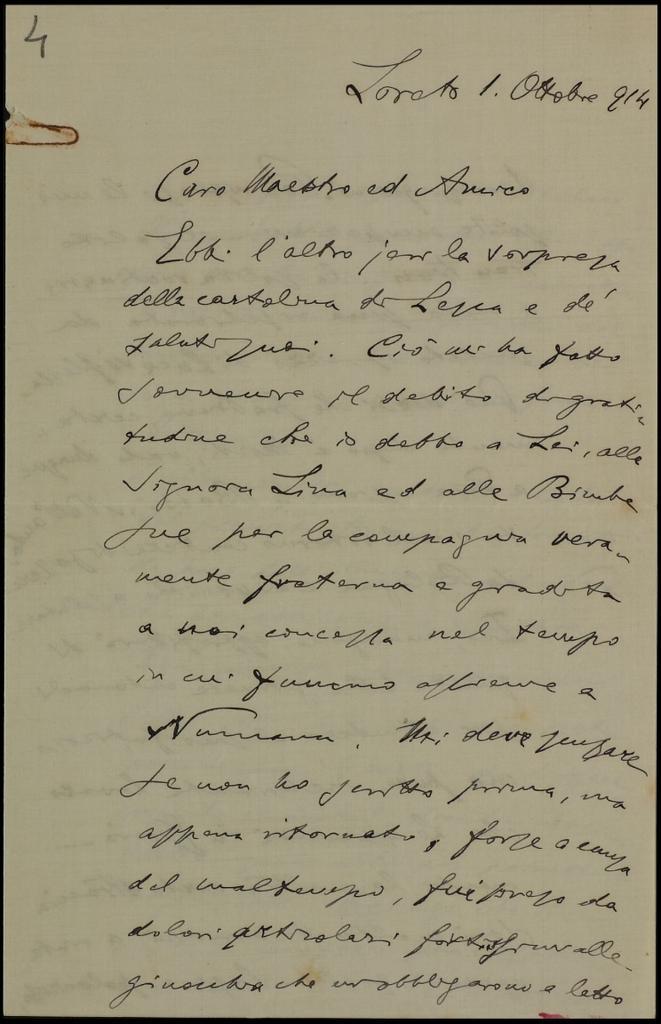 4
Loreto 1. Ottobre 914
Caro Maestro ed Amico
Ebbi l'altro jeri la sorpresa
della cartolina di e dé
saluti suoi. Ciò mi ha fatto
sovvenire il debito di grati-
tudine che io debbo a Lei, alla
Signora Lina ed alle Bimbe
sue per la compagnia vera-
mente fraterna e gradita
a noi concessa nel tempo
in cui fummo assieme a
Numana. Mi deve scusare
se non ho scritto prima, ma
appena ritornato, forse a causa
del maltempo, fui preso da
dolori articolari fortissimi alle
ginocchia che mi obbligarono a letto